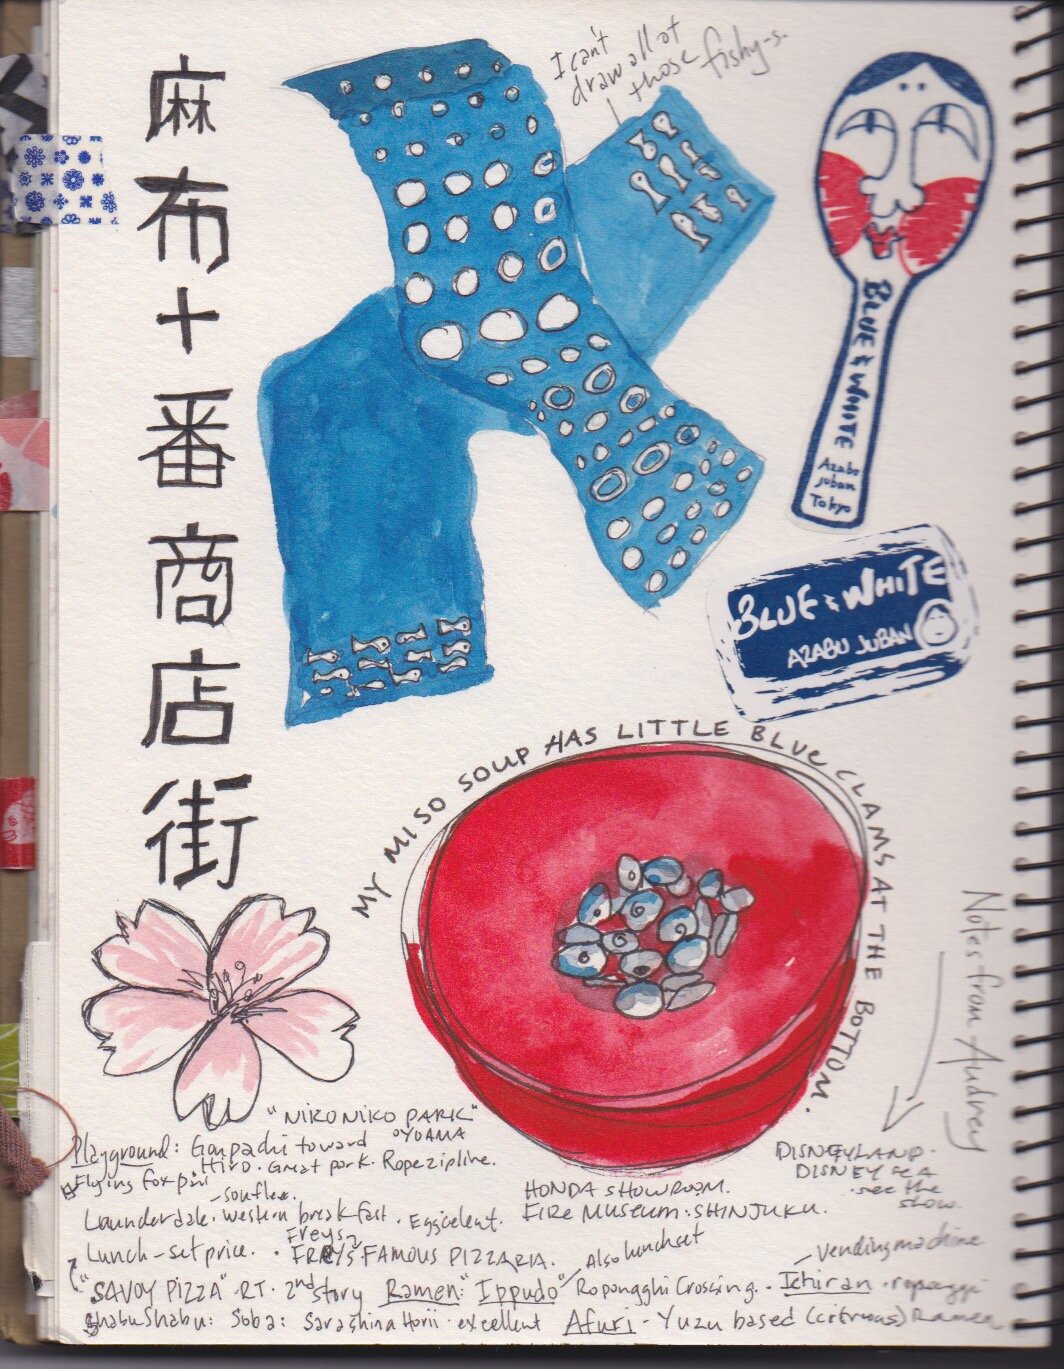 麻布十番商店街
I can't
draw all of
those fishy-s.
BLUE & WHITE
Azabu
Juban
Tokyo
BLUE & WHITE
AZABU JUBAN
MY MISO SOUP HAS LITTLE BLUE CLAMS AT THE BOTTOM.
Notes from Audrey
"NIKONIKO PARK"
Playground: Gonpachi toward OYOAMA
Hiro. Great park. Ropezipline.
Flying fox
souflee.
DISNEYLAND.
DISNEY SEA
see the
show.
HONDA SHOWROOM.
FIRE MUSEUM: SHINJUKU.
Launderdale. western breakfast. Eggcelent.
Freys
Lunch - set price. FREYS FAMOUS PIZZARIA.
Also lunch set
vending machine
"SAVOY PIZZA" RT. 2nd story Ramen: "Ippudo" Ropongghi Crossing. Ichiran. roponggi
Shabu Shabu: Soba: Sarashina Horii. excellent Afuri - Yuzu based (citrous) Ramen